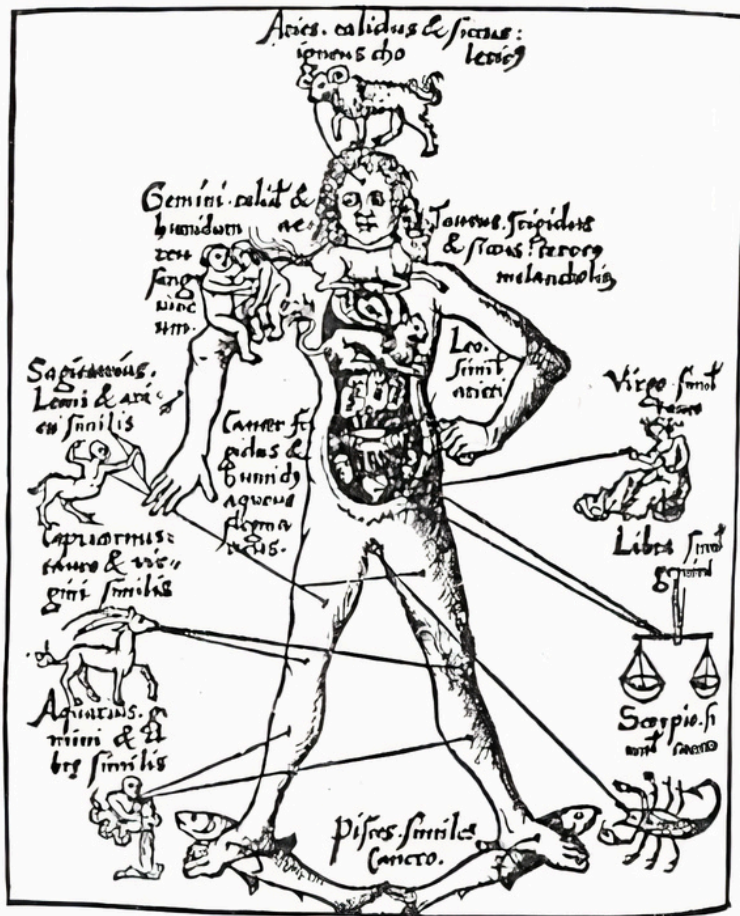 Aries. calidus & siccus:
igneus cho lericq
Gemini. calid &
humidum ae-
reu
sang
uine
um.
Taurus. frigidus
& siccus: terreq
melancholiq
Leo.
simil
arieti
Sagitarius.
Leoni & ari-
eti similis
Cancer fri
gidus &
humidq
aqueus
flegma
ticus.
Virgo simil
tauro
Capricornus:
tauro & vir-
gini similis
Libra simil
gemini
Aquarius. ge
mini & li
bre similis
Scorpio. si
mil cancro
Pisces. similes
Cancro.